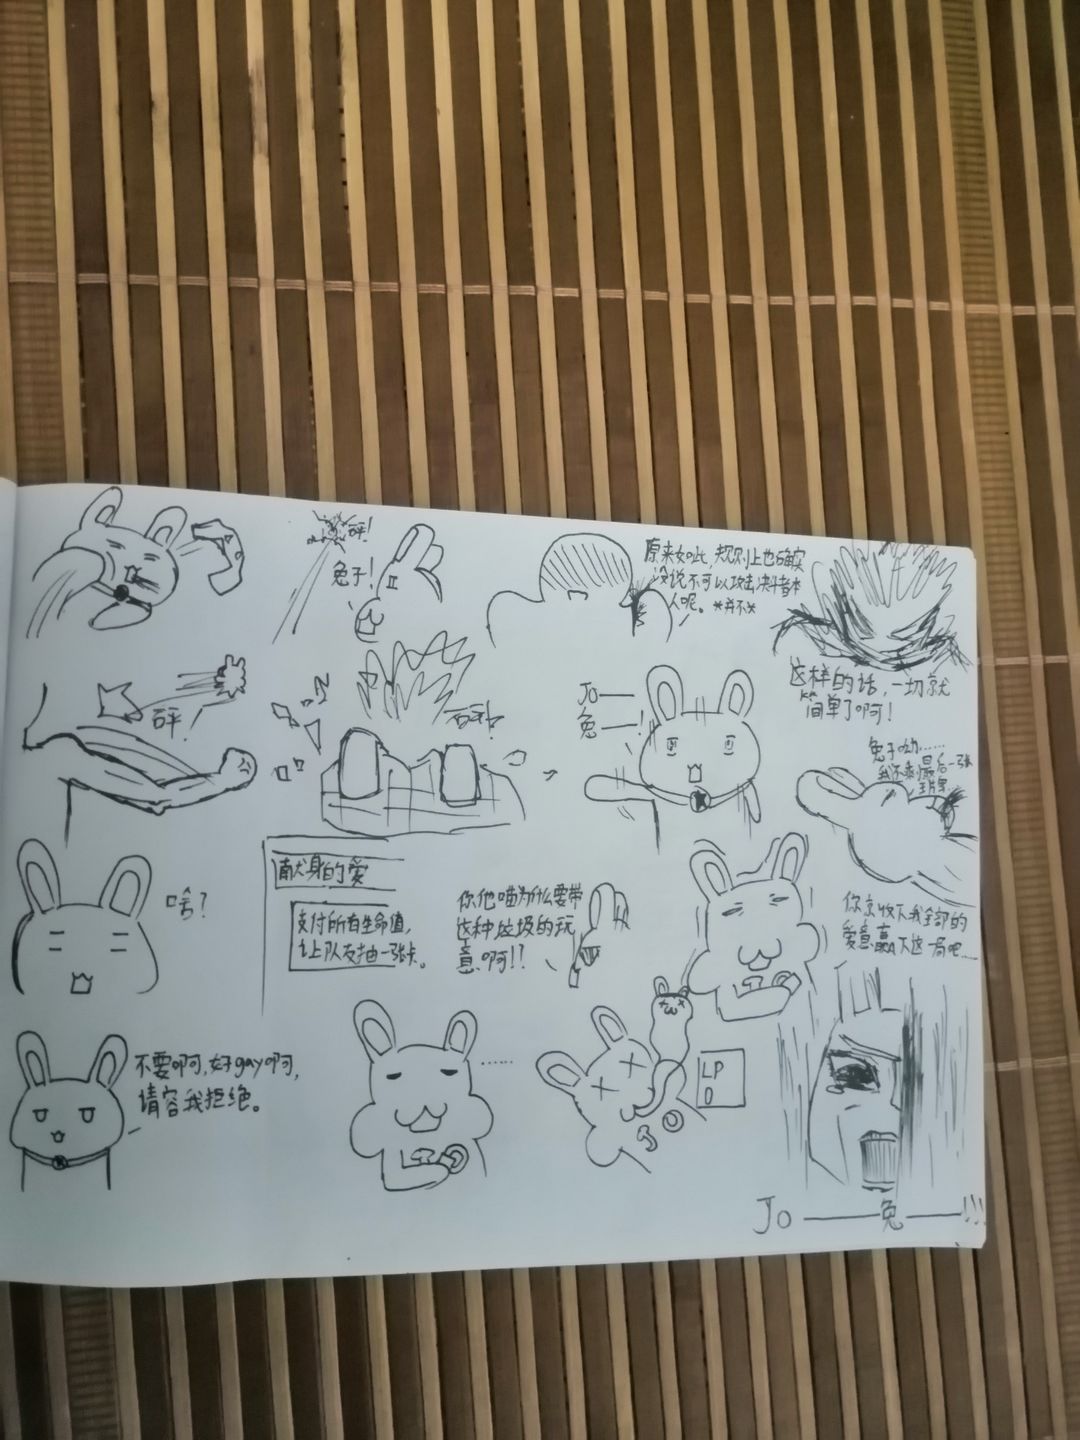 砰!
兔子!
原来如此,规则上也确实
没说不可以攻击决斗者本
人呢。*并不*
这样的话,一切就
简单了啊!
砰!
Jo——
兔——!
兔子呦……
我还剩最后一张
手牌
啥?
献身的爱
支付所有生命值,
让队友抽一张卡。
你他喵为什么要带
这种垃圾的玩
意啊!!
你就收下我全部的
爱意,赢下这一局吧……
不要啊,好gay啊,
请容我拒绝。
……
LP
0
Jo——兔——!!!